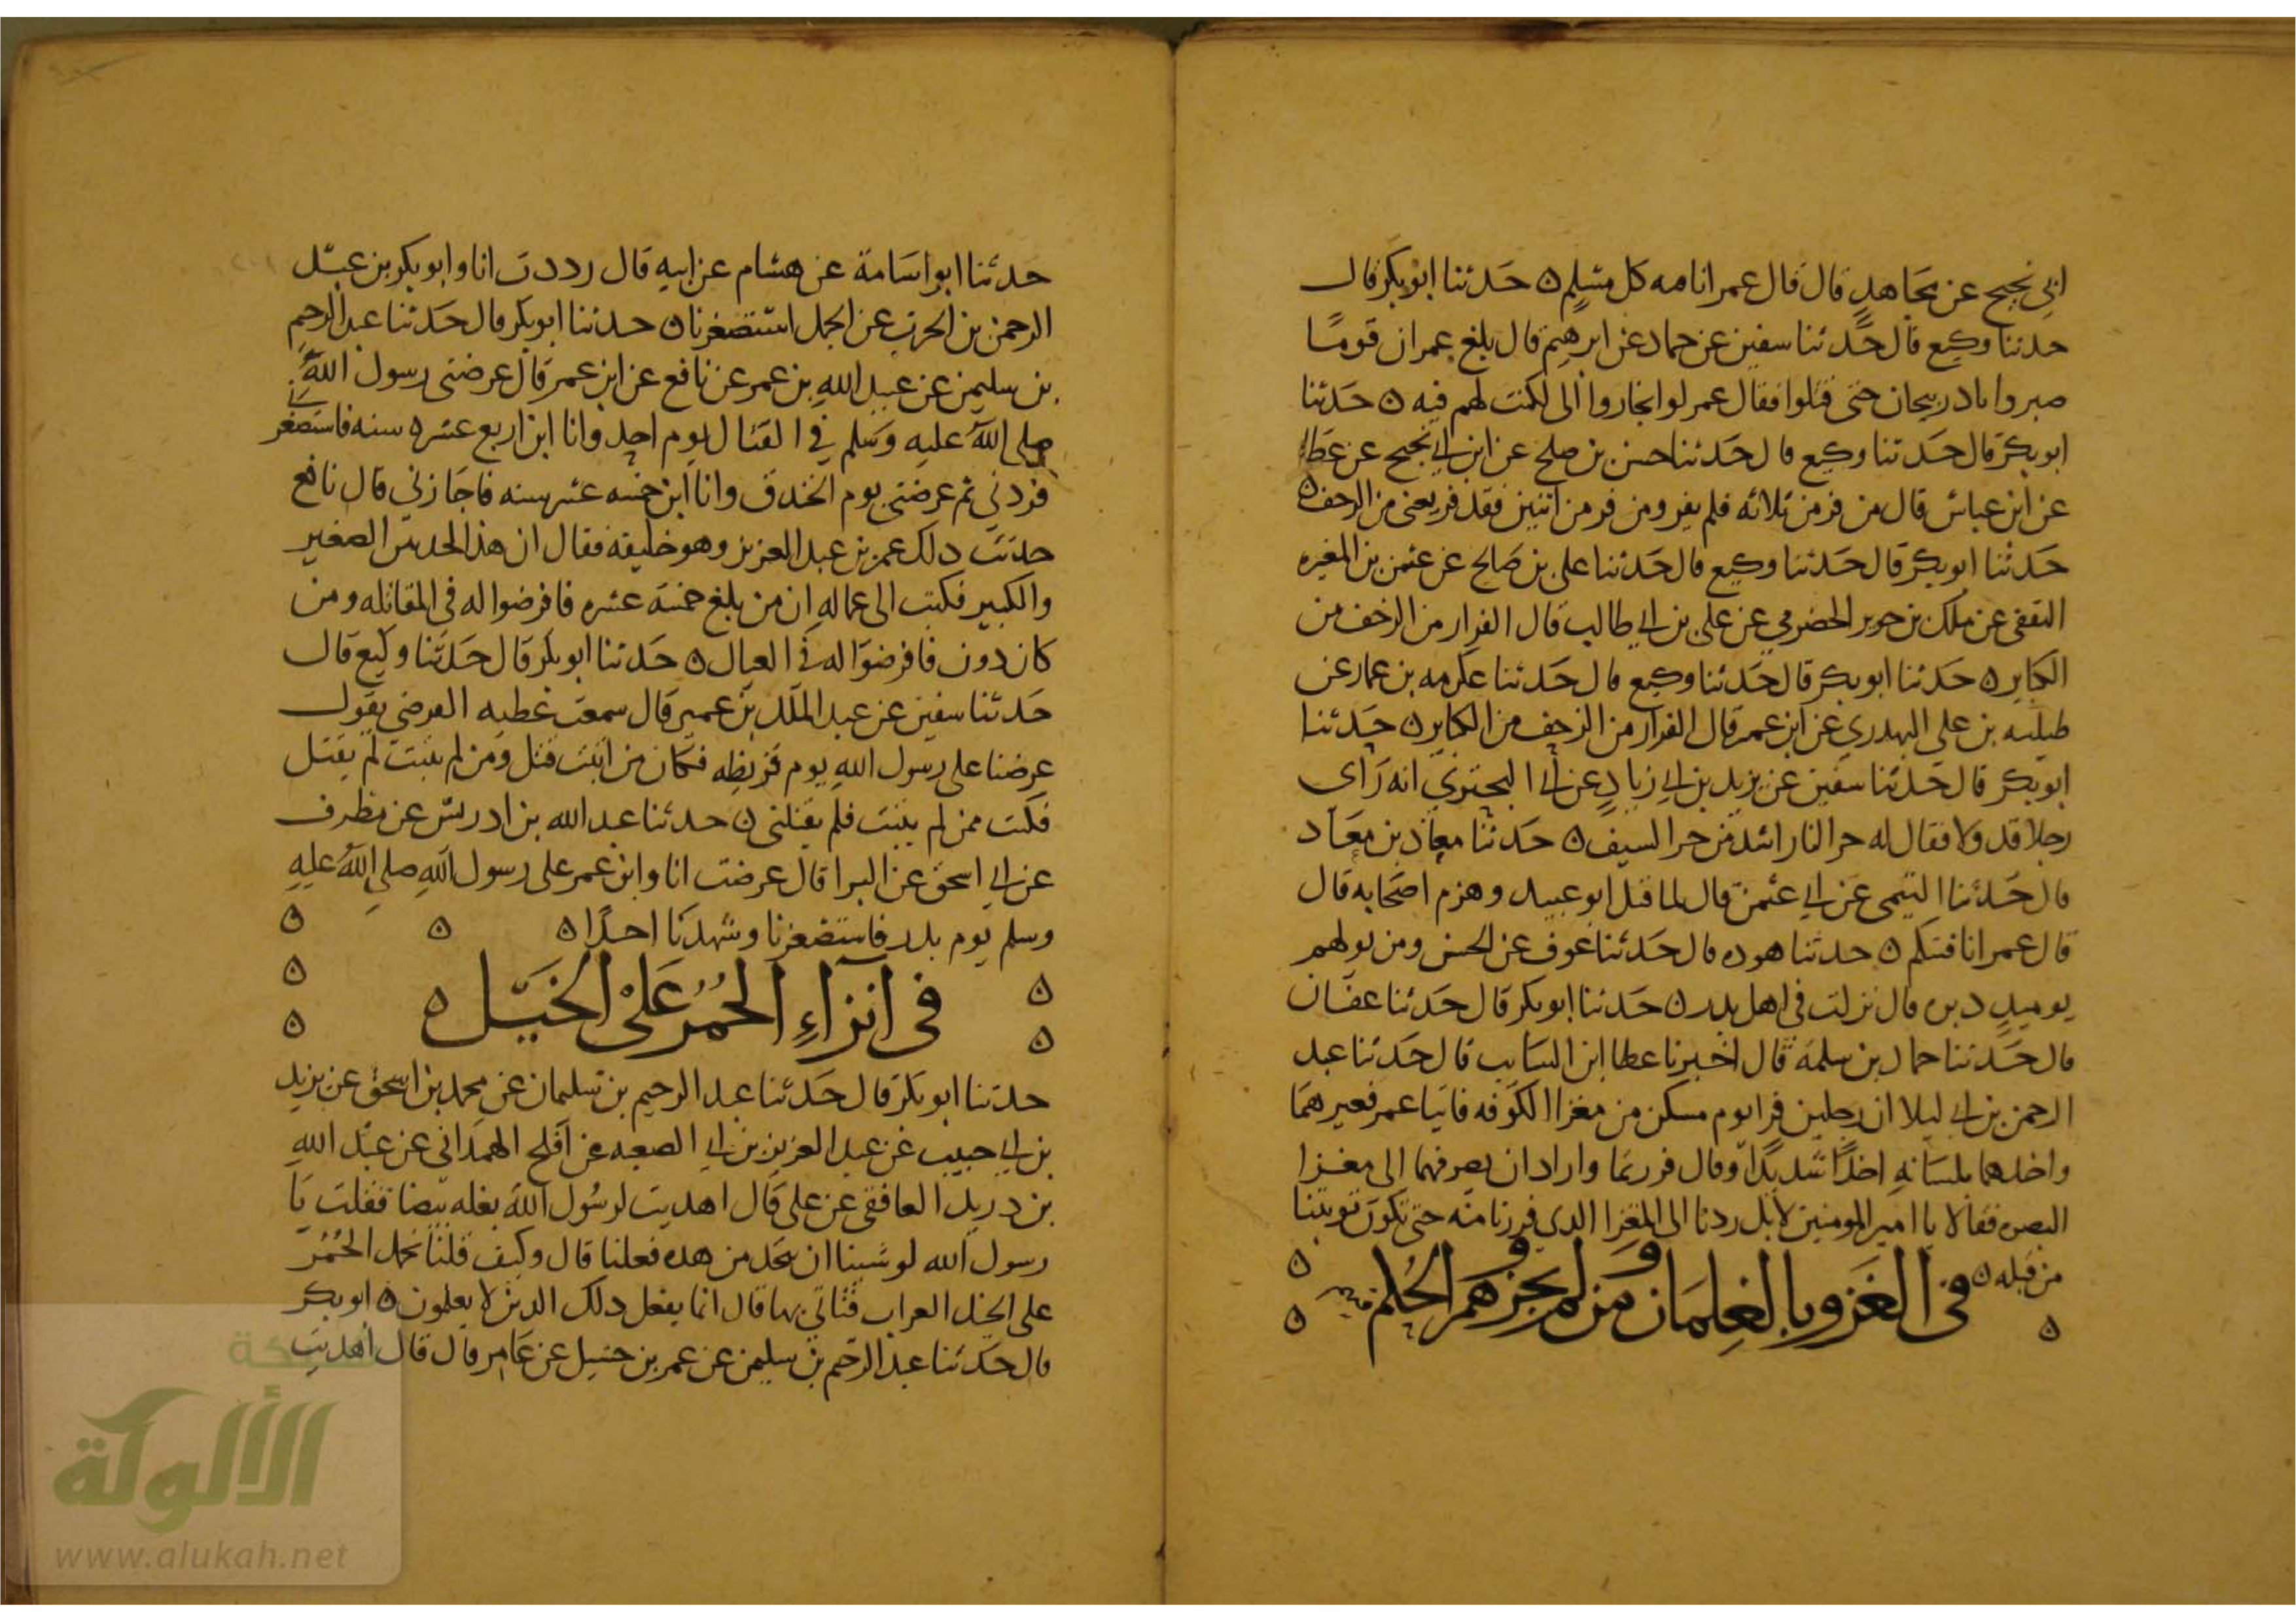 ابي نجيح عن مجاهد قال قال عمر انا فه كل مسلم ه حدثنا ابو بكر قال
حدثنا وكيع قال حدثنا سفين عن حماد عن ابرهيم قال بلغ عمر ان قوما
صبروا باذربيجان حتى قتلوا فقال عمر لو انحازوا الى لكنت لهم فيه ه حدثنا
ابو بكر قال حدثنا وكيع قال حدثنا حسن بن صلح عن ابن ابي نجيح عن عطا
عن ابن عباس قال من فر من ثلاثه فلم يفر ومن فر من اثنين فقد فر يعنى من الزحف ه
حدثنا ابو بكر قال حدثنا وكيع قال حدثنا على بن صالح عن عثمن بن المغيره
الثقفى عن ملك بن جوير الحضرمي عن على بن ابي طالب قال الفرار من الزحف من
الكباير ه حدثنا ابو بكر قال حدثنا وكيع قال حدثنا عكرمه بن عمار عن
طيلسه بن على البهدري عن ابن عمر قال الفرار من الزحف من الكباير ه حدثنا
ابو بكر قال حدثنا سفين عن يزيد بن ابي زياد عن ابي البختري انه رأى
رجلا قد ولا فقال له حر النار اشد من حر السيف ه حدثنا معاذ بن معاذ
قال حدثنا التيمى عن ابي عثمن قال لما قتل ابو عبيد وهزم اصحابه قال
قال عمر انا فئتكم ه حدثنا هوده قال حدثنا عوف عن الحسن ومن يولهم
يوميذ دبره قال نزلت في اهل بدر ه حدثنا ابو بكر قال حدثنا عفان
قال حدثنا حماد بن سلمه قال اخبرنا عطا ابن السايب قال حدثنا عبد
الرحمن بن ابي ليلا ان رجلين فرا يوم مسكن من مغزا الكوفه فاتيا عمر فعيرهما
واخذهما بلسانه اخذا شديدا وقال فررتما واراد ان يصرفهما الى مغزا
البصره فقالا يا امير المومنين لا بل ردنا الى المغزا الذي فررنا منه حتى تكون توبتنا
من قبله ه
في الغزو بالغلمان ومن لم يجزهم الحلم
حدثنا ابو اسامة عن هشام عن ابيه قال رددت انا وابو بكر بن عبد
الرحمن بن الحرث عن الجمل استصغرنا ه حدثنا ابو بكر قال حدثنا عبد الرحيم
بن سليمن عن عبيد الله بن عمر عن نافع عن ابن عمر قال عرضنى رسول الله
صلى الله عليه وسلم في القتال يوم احد وانا ابن اربع عشره سنه فاستصغرني
فردني ثم عرضنى يوم الخندق وانا ابن خمسه عشر سنه فاجازني قال نافع
حدثت ذلك عمر بن عبد العزيز وهو خليفه فقال ان هذا لحد بين الصغير
والكبير فكتب الى عماله ان من بلغ خمسة عشره فافرضوا له في المقاتله ومن
كان دون فافرضوا له في العيال ه حدثنا ابو بكر قال حدثنا وكيع قال
حدثنا سفين عن عبد الملك بن عمير قال سمعت عطيه القرضي يقول
عرضنا على رسول الله يوم قريظه فكان من انبت قتل ومن لم ينبت لم يقتل
فكنت ممن لم ينبت فلم يقتلنى ه حدثنا عبد الله بن ادريس عن مطرف
عن ابي اسحق عن البرا قال عرضت انا وابن عمر على رسول الله صلى الله عليه
وسلم يوم بدر فاستصغرنا وشهدنا احدا ه
في انزاء الحمر على الخيل ه
حدثنا ابو بكر قال حدثنا عبد الرحيم بن سليمان عن محمد بن اسحق عن يزيد
بن ابي حبيب عن عبد العزيز بن ابي الصعبه عن افلح الهمداني عن عبد الله
بن دريد الغافقى عن على قال اهديت لرسول الله بغله بيضا فقلت يا
رسول الله لو شينا ان نتخذ من هذه فعلنا قال وكيف قلنا نحمل الحمر
على الخيل العراب فتاتي بها قال انما يفعل ذلك الذين لا يعلمون ه ابو بكر
قال حدثنا عبد الرحيم بن سليمن عن عمر بن حسيل عن عامر قال قال اهديت
شبكة
الألوكة
www.alukah.net